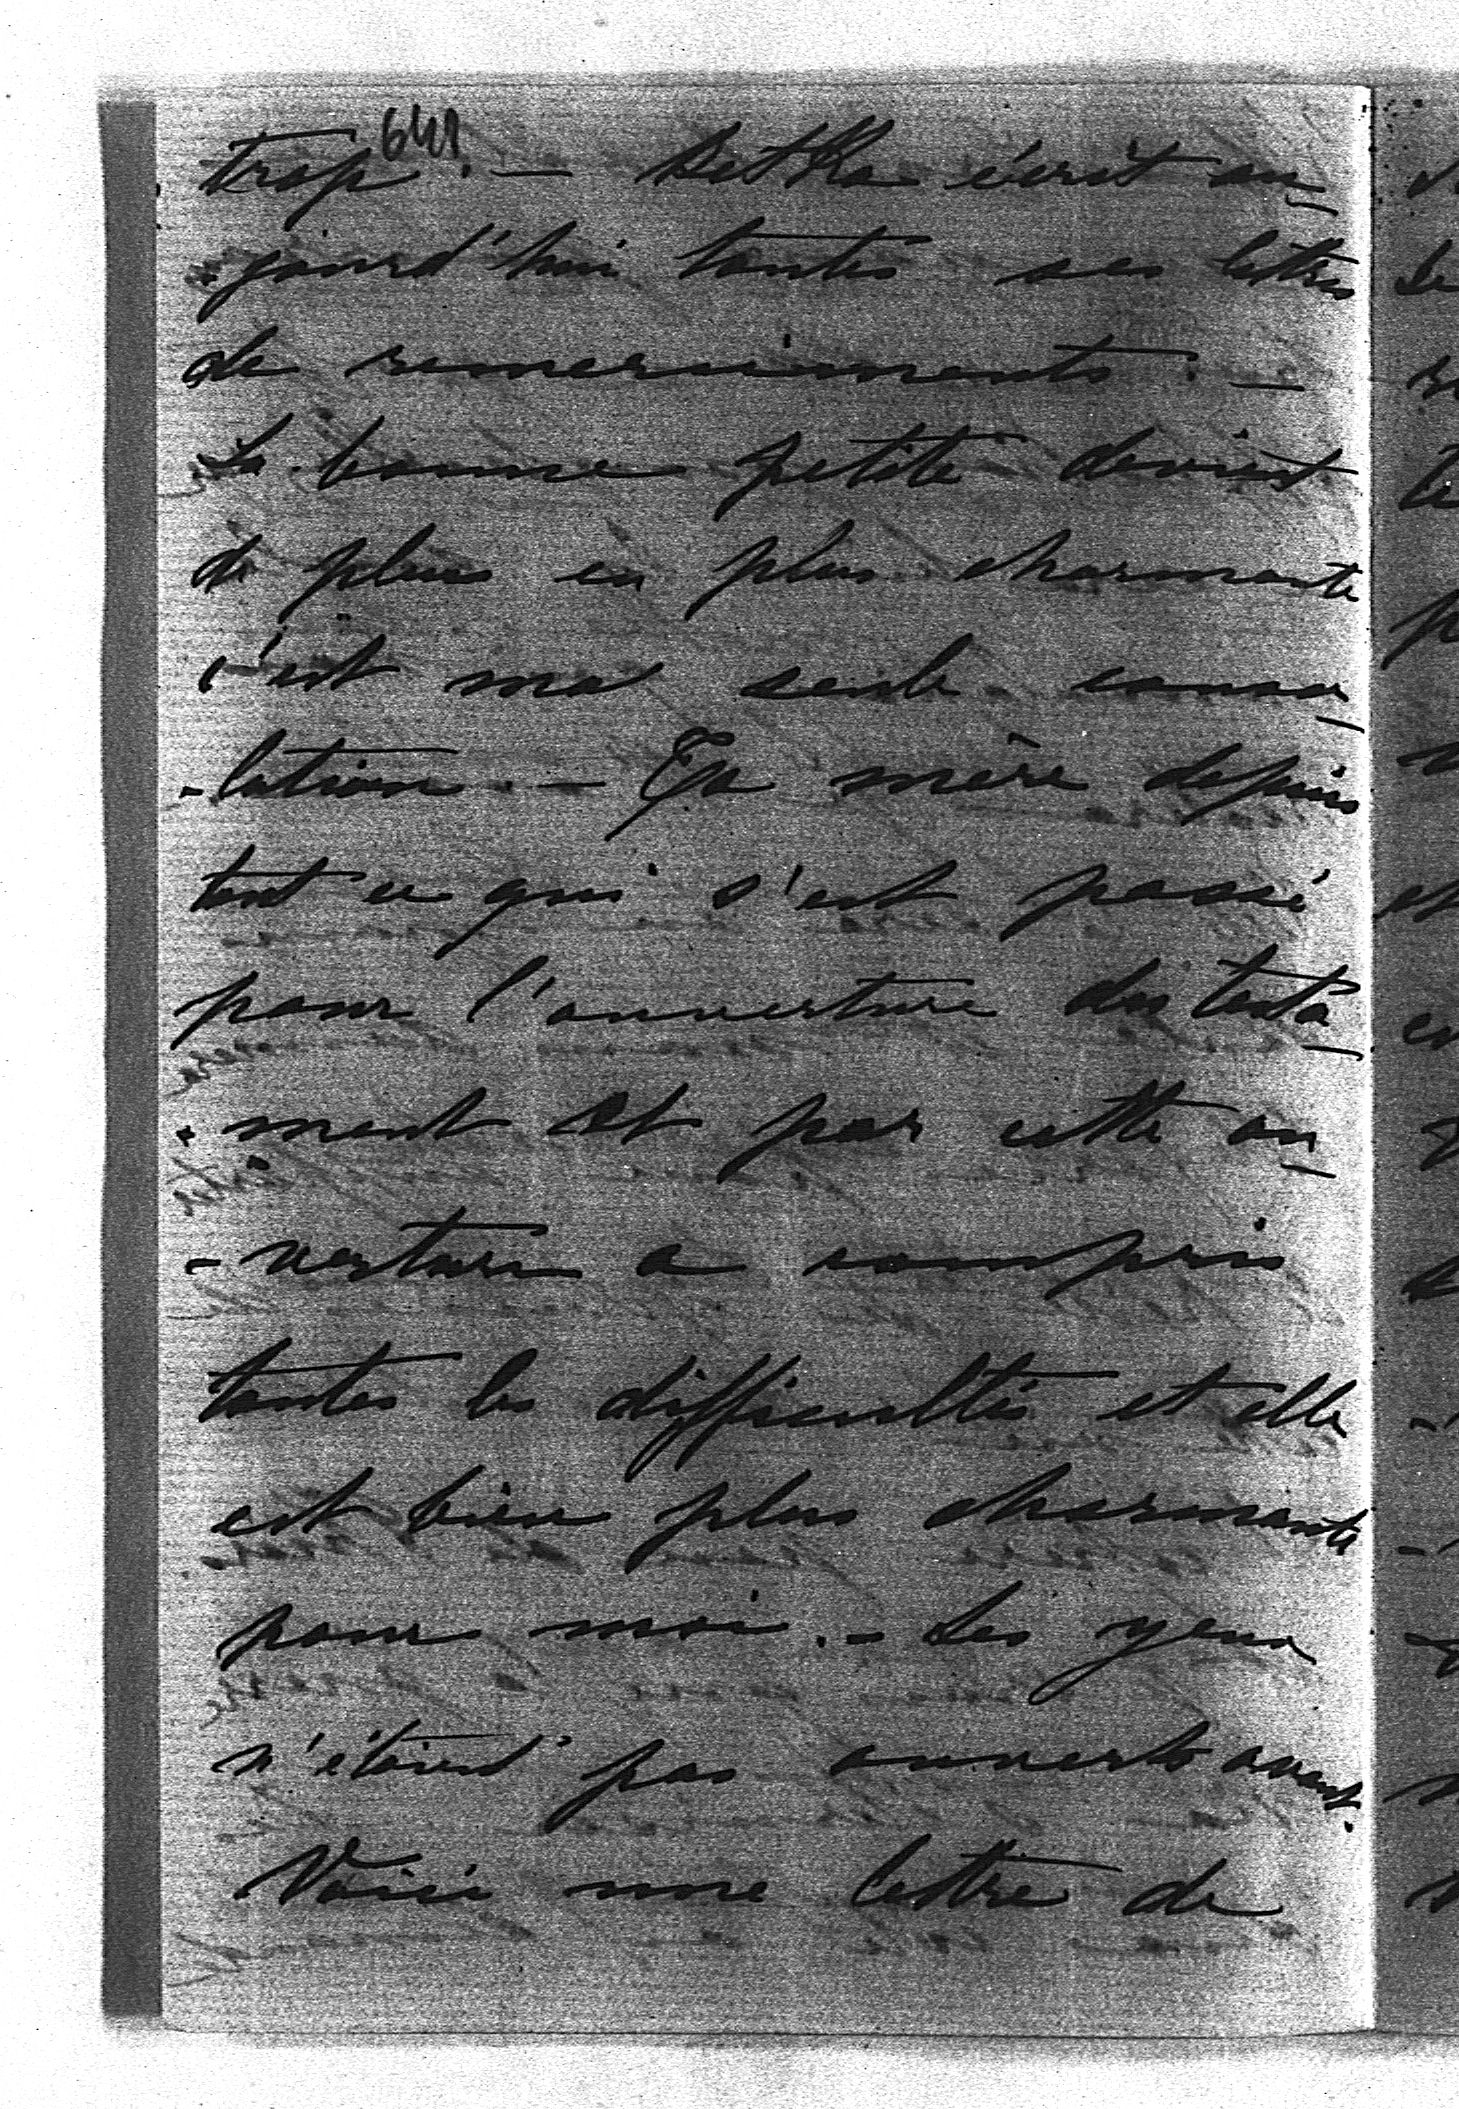 641
trop. — Betka écrit au-
-jourd'hui toutes ses lettres
de remerciments. —
La bonne petite devient
de plus en plus charmante
c'est ma seule conso-
-lation. — Ta mère depuis
tout ce qui s'est passé
pour l'ouverture du testa-
-ment et par cette ou-
-verture a compris
toutes les difficultés et elle
est bien plus charmante
pour moi. — Les yeux
n'étaient pas ouverts avant.
Voici une lettre de